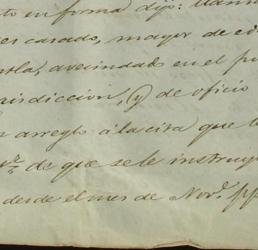 to en forma dijo: llama
es casado, mayor de e
tla, avecindado en el p
risdiccion, (y) de oficio
n arreglo a la cita que
de que se le instruy
desde el mes de Nov.e pp